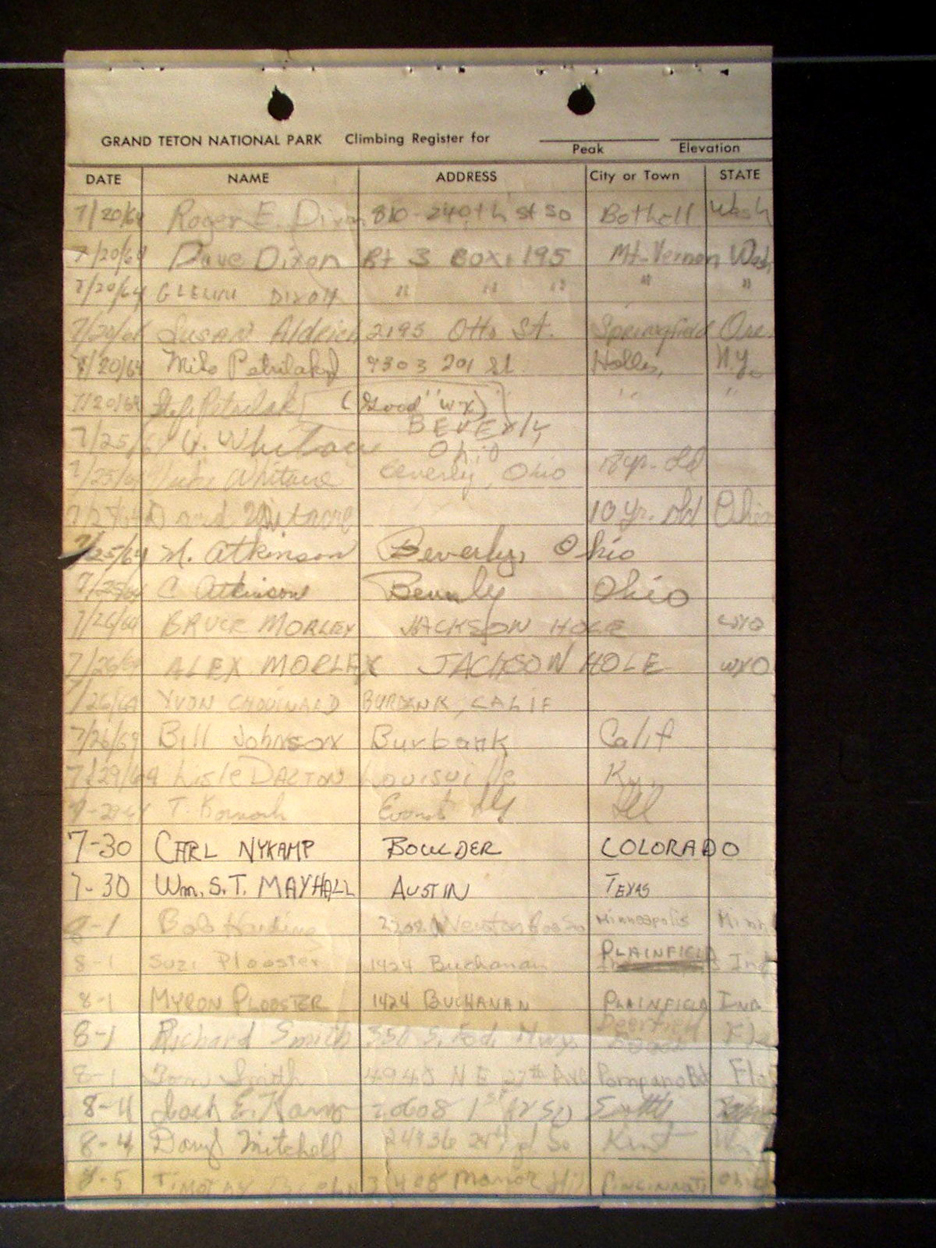 GRAND TETON NATIONAL PARK Climbing Register for
Peak Elevation
DATE NAME ADDRESS City or Town STATE
7/20/64 Roger E. Dixon 810-240th St So Bothell Wash
7/20/64 Dave Dixon Rt 3 Box 195 Mt. Vernon Wash
7/20/64 GLENN DIXON " " " " "
7/20/64 Susan Aldrich 2195 Otto St. Springfield Ore.
7/20/64 Mike Petrilak 9303 201 St Hollis, N.Y.
7/20/64 Petrilak (Good "wx") " "
7/25/64 Whitacre BEVErly Ohio
7/25/64 Mike Beverly, Ohio 18 yr. old
David 10 Yr. old Ohio
7/25/64 M. Atkinson Beverly, Ohio
7/25/64 C Atkinson Beverly Ohio
7/26/64 BRUCE MORLEY JACKSON HOLE WYO
7/26/64 ALEX MORLEY JACKSON HOLE WYO
7/26/64 YVON CHOUINARD BURBANK, CALIF
7/26/69 Bill Johnson Burbank Calif
7/29/69 Lisle DALTON Louisville Ky.
T. Ill
7-30 CARL NYKAMP BOULDER COLORADO
7-30 Wm. S.T. MAYHALL AUSTIN TEXAS
8-1 Bob Harding Minneapolis Minn
8-1 Suzi Plooster 1424 Buchanan PLAINFIELD Ind
8-1 MYRON PLOOSTER 1424 BUCHANAN PLAINFIELD IND
8-1 Richard Smith 550 S. Fed. Hwy Deerfield Fla
8-1 Tom Smith 4940 NE 27th Ave Pompano Bch Fla
8-4 Jack E. 1st Av So Seattle
8-4 Daryl Mitchell 24836 24th pl So Kent
8-5 TIMOTHY Manor Hill CINCINNATI Ohio